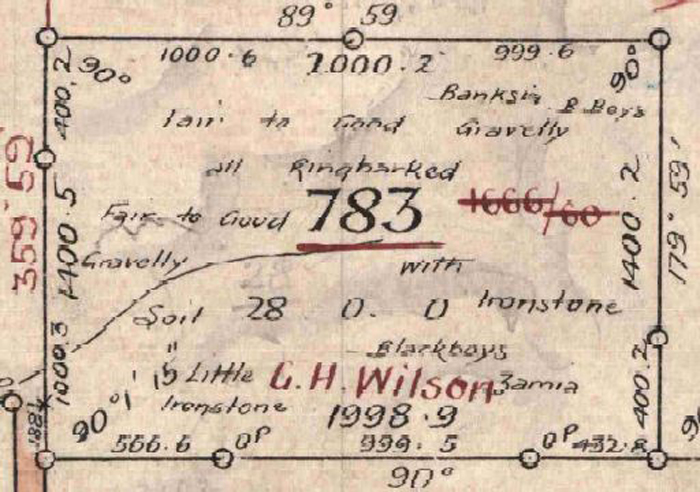 89° 59
1000.6 999.6
2000.2
90° 90°
400.2
Banksia B Boys
Fair to Good Gravelly
all Ringbarked
359° 59
1400.5
Fair to Good 783 1666/60
1400.2
179° 59'
Gravelly with
28
Soil 28 0. 0 Ironstone
Blackboys
1000.3
Little G. H. Wilson Zamia
400.2
Ironstone 1998.9
90°
566.6 OP 999.5 OP 432.8
90°